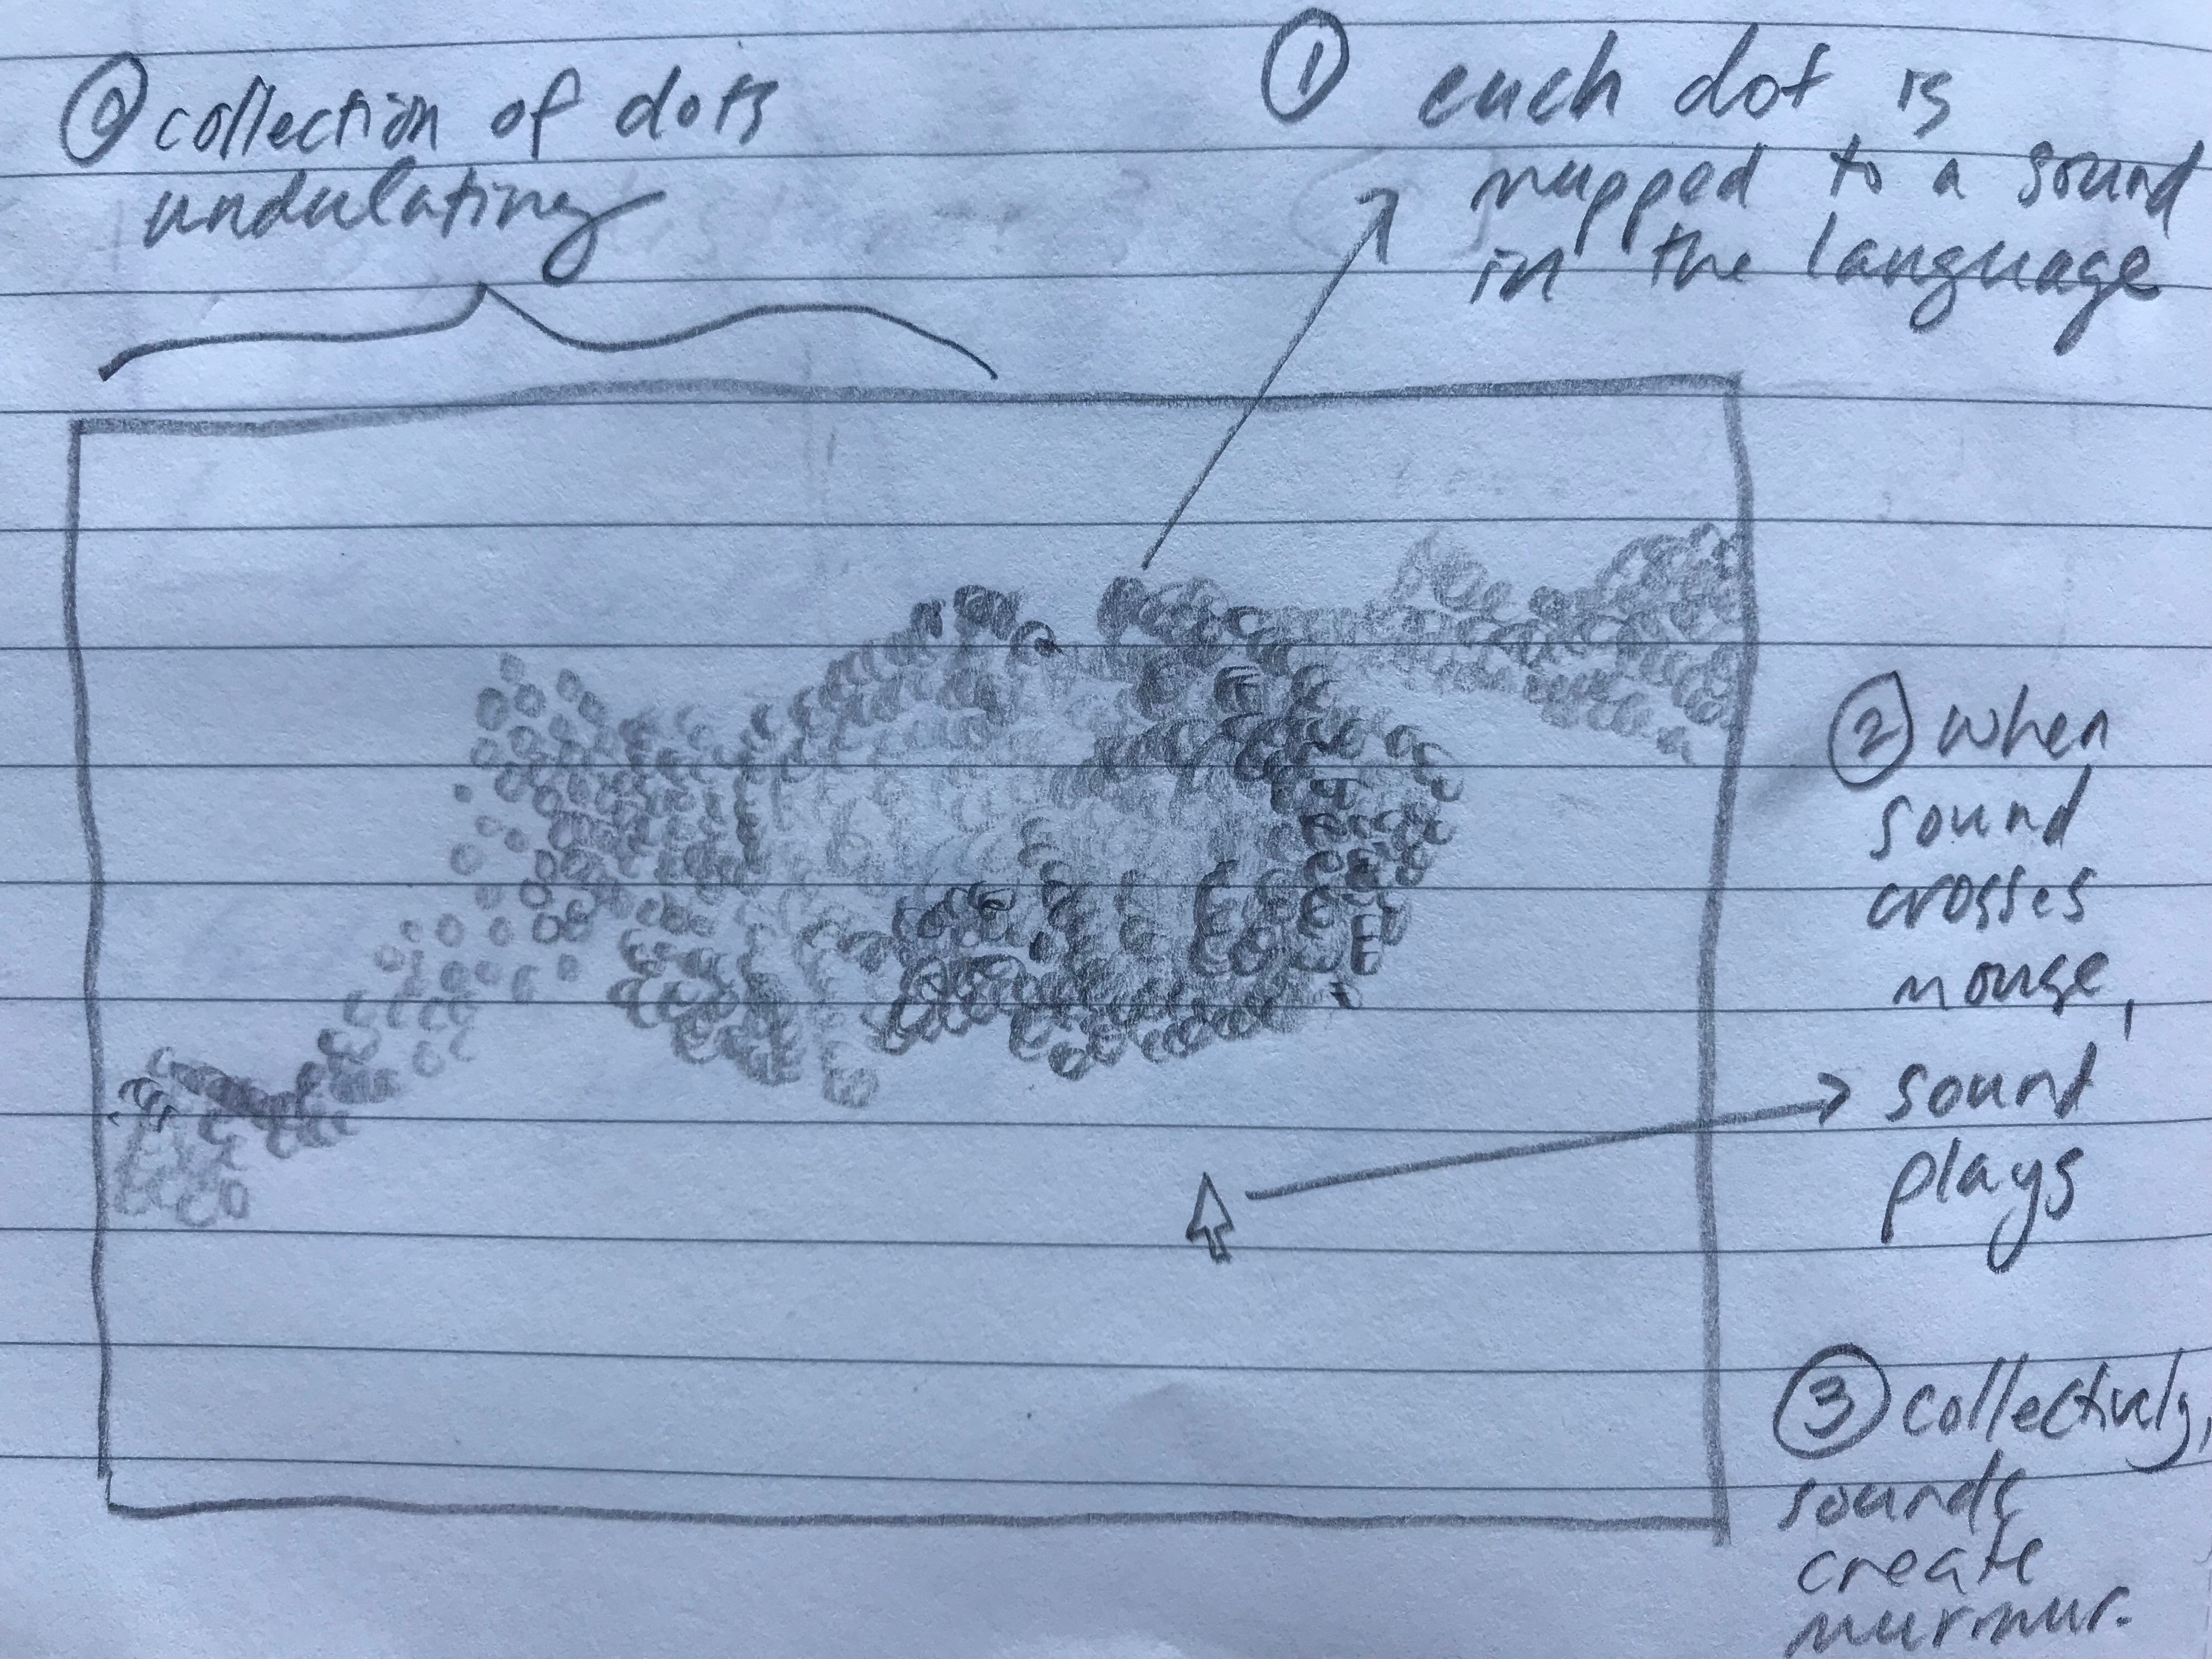 0 collection of dots
undulating
1 each dot is
mapped to a sound
in the language
2 when
sound
crosses
mouse,
sound
plays
3 collectively,
sounds
create
murmur.